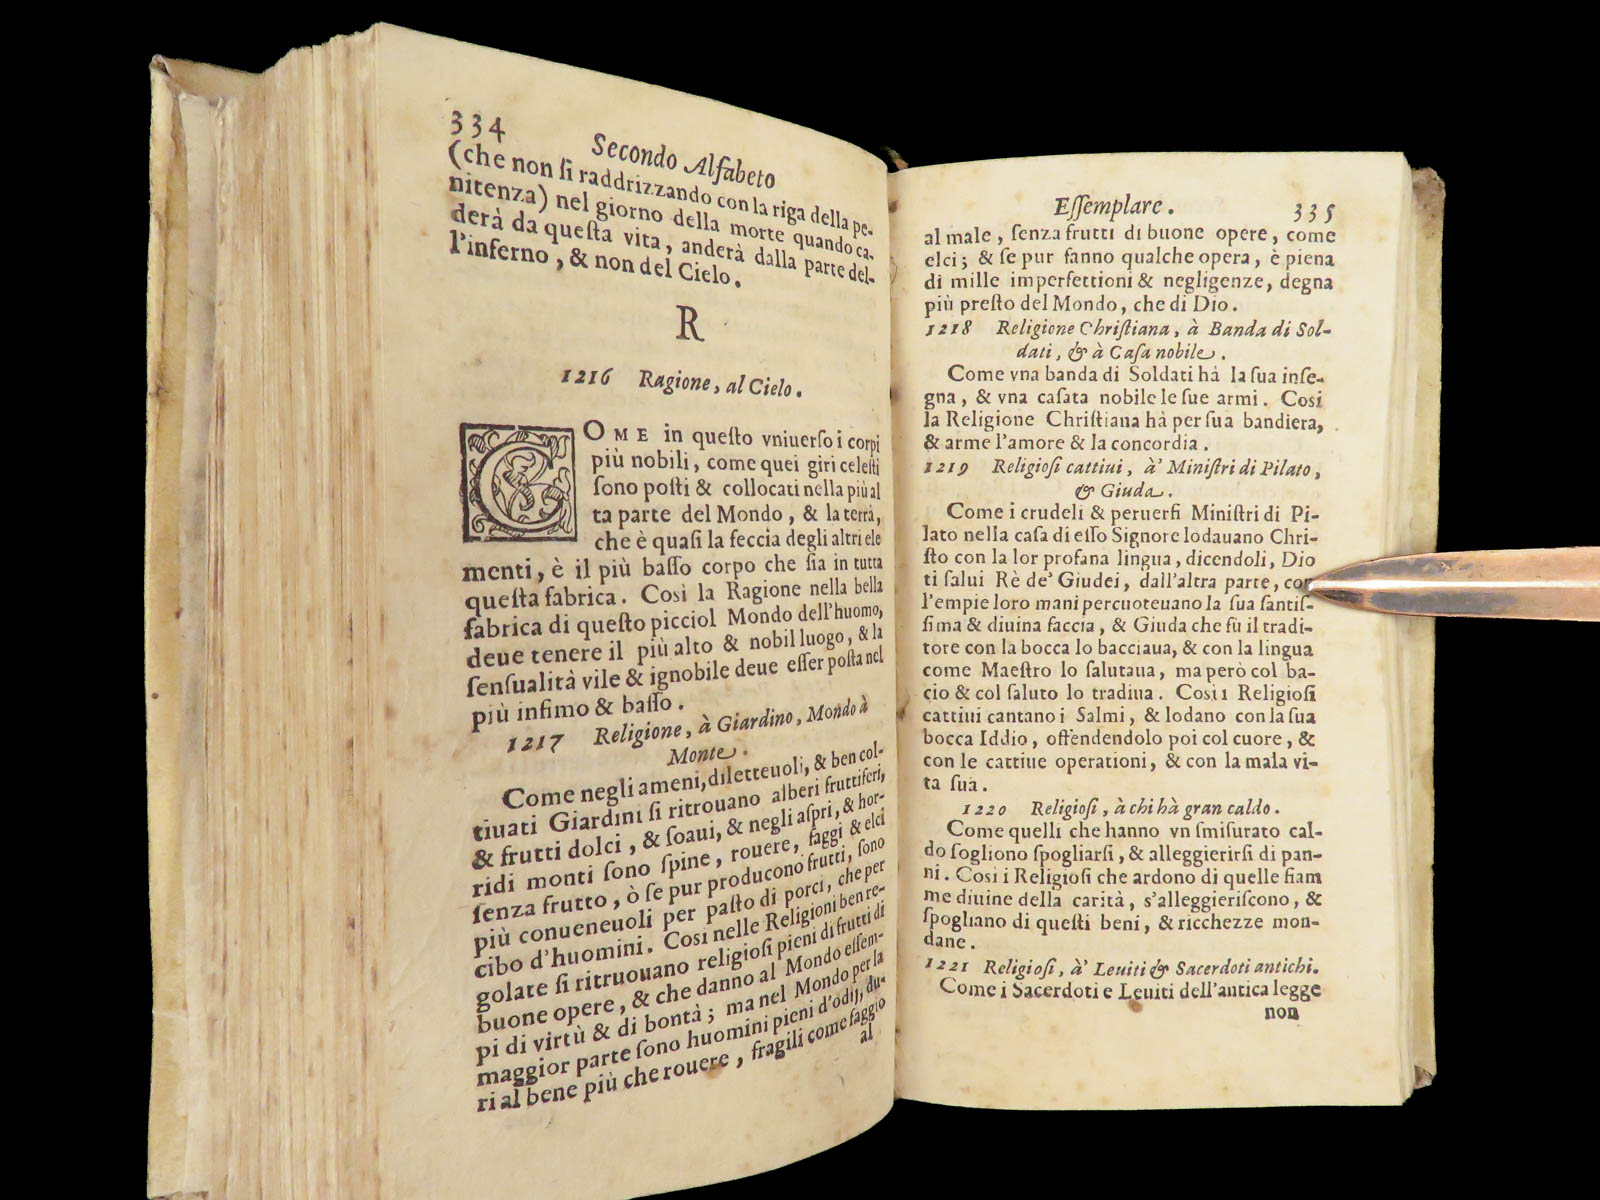 334
Secondo Alfabeto
(che non ſi raddrizzando con la riga della pe-
nitenza) nel giorno della morte quando ca-
derà da queſta vita, anderà dalla parte del-
l'inferno, & non del Cielo.
R
1216 Ragione, al Cielo.
COME in queſto vniuerſo i corpi
più nobili, come quei giri celeſti
ſono poſti & collocati nella più al
ta parte del Mondo, & la terrà,
che è quaſi la feccia degli altri ele
menti, è il più baſſo corpo che ſia in tutta
queſta fabrica. Così la Ragione nella bella
fabrica di queſto picciol Mondo dell'huomo,
deue tenere il più alto & nobil luogo, & la
ſenſualità vile & ignobile deue eſſer poſta nel
più infimo & baſſo.
1217 Religione, à Giardino, Mondo à
Monte.
Come negli ameni, diletteuoli, & ben col-
tiuati Giardini ſi ritrouano alberi fruttiferi,
& frutti dolci, & ſoaui, & negli aſpri, & hor-
ridi monti ſono ſpine, rouere, faggi & elci
ſenza frutto, ò ſe pur producono frutti, ſono
più conueneuoli per paſto di porci, che per
cibo d'huomini. Cosi nelle Religioni ben re-
golate ſi ritruouano religioſi pieni di frutti di
buone opere, & che danno al Mondo eſſem-
pi di virtù & di bontà; ma nel Mondo per la
maggior parte ſono huomini pieni d'odij, du-
ri al bene più che rouere, fragili come faggio
al
Eſſemplare.
335
al male, ſenza frutti di buone opere, come
elci; & ſe pur fanno qualche opera, è piena
di mille imperfettioni & negligenze, degna
più preſto del Mondo, che di Dio.
1218 Religione Chriſtiana, à Banda di Sol-
dati, & à Caſa nobile.
Come vna banda di Soldati hà la ſua inſe-
gna, & vna caſata nobile le ſue armi. Cosi
la Religione Chriſtiana hà per ſua bandiera,
& arme l'amore & la concordia.
1219 Religioſi cattiui, à' Miniſtri di Pilato,
& Giuda.
Come i crudeli & peruerſi Miniſtri di Pi-
lato nella caſa di eſſo Signore lodauano Chri-
ſto con la lor profana lingua, dicendoli, Dio
ti ſalui Rè de' Giudei, dall'altra parte, con
l'empie loro mani percuoteuano la ſua ſantiſ-
ſima & diuina faccia, & Giuda che fù il tradi-
tore con la bocca lo bacciaua, & con la lingua
come Maeſtro lo ſalutaua, ma però col ba-
cio & col ſaluto lo tradiua. Così i Religioſi
cattiui cantano i Salmi, & lodano con la ſua
bocca Iddio, offendendolo poi col cuore, &
con le cattiue operationi, & con la mala vi-
ta ſua.
1220 Religioſi, à chi hà gran caldo.
Come quelli che hanno vn ſmiſurato cal-
do ſogliono ſpogliarſi, & alleggierirſi di pan-
ni. Cosi i Religioſi che ardono di quelle fiam
me diuine della carità, s'alleggieriſcono, &
ſpogliano di queſti beni, & ricchezze mon-
dane.
1221 Religioſi, à' Leuiti & Sacerdoti antichi.
Come i Sacerdoti e Leuiti dell'antica legge
non